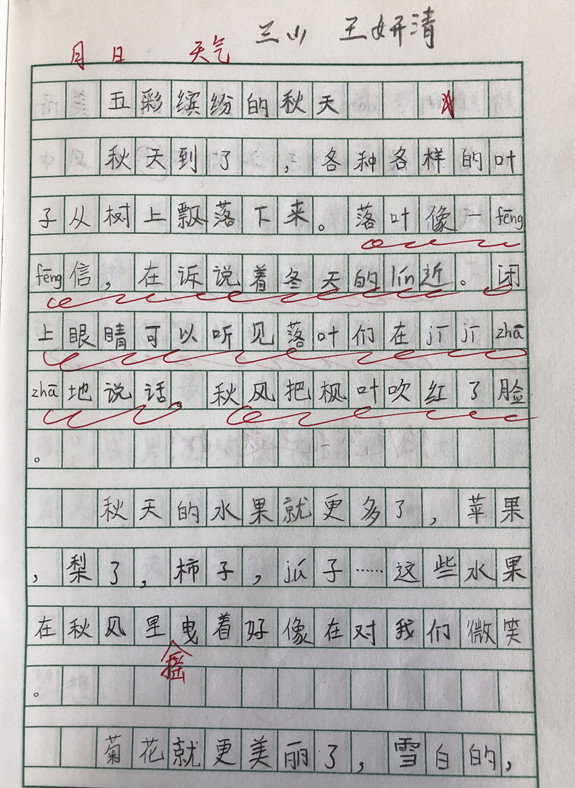 三山 王妍清
月 日 天气
五彩缤纷的秋天
秋天到了,各种各样的叶
子从树上飘落下来。落叶像一fēng
fēng信,在诉说着冬天的lín近。闭
上眼睛可以听见落叶们在jījīzhā
zhā地说话。秋风把枫叶吹红了脸
。
秋天的水果就更多了,苹果
,梨了,柿子,jú子……这些水果
在秋风里曳着好像在对我们微笑
摇
。
菊花就更美丽了,雪白的,